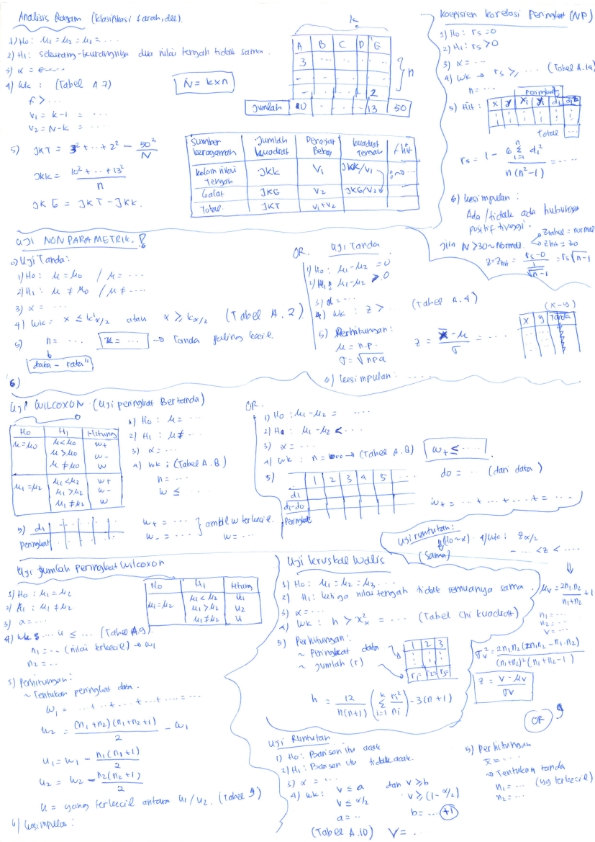 Analisis Ragam (klasifikasi 1 arah, dll.)
1) H0 : μ1 = μ2 = μ3 = ....
2) H1 : sekurang-kurangnya dua nilai tengah tidak sama.
3) α =
4) WK : (Tabel A.7)
f > ...
V1 = k-1 = ...
V2 = N-k = ...
N = k x n
k
A B C D E
3
2
n
Jumlah 10 13 50
5) JKT = 3² + ... + 2² - 50²/N
JKK = 10² + ... + 13² / n
JKG = JKT - JKK.
Sumber keragaman | Jumlah kuadrat | Derajat bebas | kuadrat tengah | f hit
kolom nilai tengah | JKK | V1 | JKK/V1
Galat | JKG | V2 | JKG/V2
Total | JKT | V1+V2
Koefisien korelasi Peringkat (NP)
1) H0 : rs = 0
2) H1 : rs > 0
3) α = ...
4) WK → rs ≥ ... (Tabel A.
n = ...
5) Hit :
Peringkat
Total
rs = 1 - 6 Σ di² / n (n²-1) = ...
6) kesimpulan :
Ada/tidak ada hubungan positif tinggi.
Jika N > 30 ~ Normal.
Z = rs - 0 / 1/√n-1 = rs √n-1
UJI NON PARAMETRIK.
Uji Tanda :
1) H0 : μ = μ0 / μ = ...
2) H1 : μ ≠ μ0 / μ ≠ ...
3) α = ...
4) WK : x ≤ k'α/2 atau x ≥ kα/2 (Tabel A. 2)
5) n = ... x = ... → Tanda paling kecil.
data - rata²
6)
OR. Uji Tanda
1) H0 : μ1 - μ2 = 0
2) H1 : μ1 - μ2 > 0
3) α = ...
4) WK : Z > ... (Tabel A.4)
5) Perhitungan :
μ = n.p.
σ = √npq
Z = x - μ / σ = ...
(x-y)
x y Tanda
6) kesimpulan : ...
Uji WILCOXON (Uji peringkat Bertanda)
H0 | H1 | Hitung
μ = μ0 | μ < μ0 | w+
μ > μ0 | w-
μ ≠ μ0 | w
μ1 = μ2 | μ1 < μ2 | w+
μ1 > μ2 | w-
μ1 ≠ μ2 | w
1) H0 : μ = ...
2) H1 : μ ≠ ...
3) α = ...
4) WK : (Tabel A.8)
n = ...
w ≤ ...
5) di
Peringkat
w+ = ...
w- = ...
ambil w terkecil.
w = ...
OR.
1) H0 : μ1 - μ2 = ...
2) H1 : μ1 - μ2 < ...
3) α = ...
4) WK : n = → (Tabel A.8) w+ ≤ ...
5) 1 2 3 4 5 ...
di
di-d0
Peringkat
d0 = ... (dari data)
w+ = ... + ... + ... + ... = ...
Uji Jumlah Peringkat Wilcoxon
1) H0 : μ1 = μ2
2) H1 : μ1 ≠ μ2
3) α = ...
4) WK : u ≤ ... (Tabel A.9)
n1 = ... (nilai terkecil) → w1
n2 = ...
H0 | H1 | Hitung
μ1 = μ2 | μ1 < μ2 | u1
μ1 > μ2 | u2
μ1 ≠ μ2 | u
5) Perhitungan :
~ Tentukan peringkat data.
w1 = ... + ... + ... + ... = ...
w2 = (n1+n2)(n1+n2+1) / 2 - w1
u1 = w1 - n1(n1+1) / 2
u2 = w2 - n2(n2+1) / 2
u = yang terkecil antara u1/u2. (Tabel 9)
6) kesimpulan :
Uji Kruskal Wallis
1) H0 : μ1 = μ2 = μ3 ...
2) H1 : ketiga nilai tengah tidak semuanya sama.
3) α = ...
4) WK : h > χ²α = ... (Tabel Chi kuadrat)
5) Perhitungan :
~ Peringkat data
~ Jumlah (r)
1 2 3
h = 12 / n(n+1) (Σ ri²/ni) - 3(n+1)
Uji runtutan :
(sama) 4) WK : Zα/2
- ... < Z < ...
μv = 2n1n2 / n1+n2 + 1
n1 = ...
n2 = ...
V = ...
σv² = 2n1n2(2n1n2 - n1 - n2) / (n1+n2)²(n1+n2-1)
Z = V - μv / σv
OR
Uji Runtutan
1) H0 : Barisan itu acak
2) H1 : Barisan itu tidak acak.
3) α = ...
4) WK : V = a dan V ≥ b
V ≤ α/2 V ≥ (1 - α/2)
a = ... b = ... +1
(Tabel A.10) V = ...
5) Perhitungan
x̄ = ...
→ Tentukan tanda
n1 = ... (yg terkecil)
n2 = ...